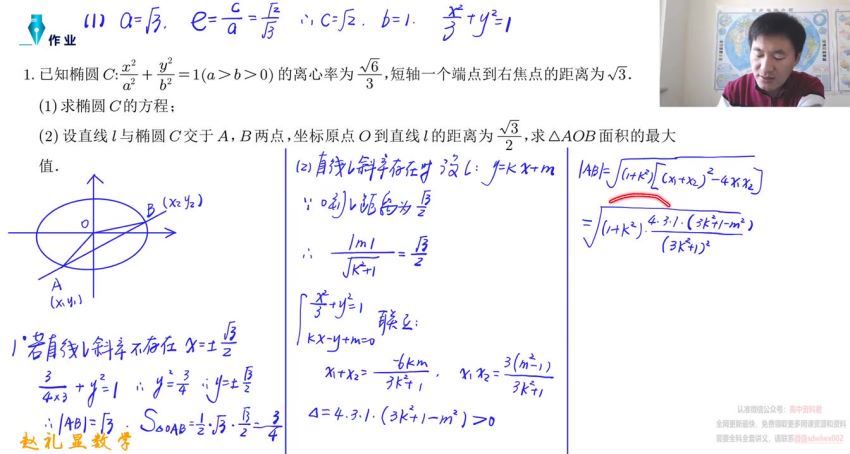 (1) a=√3. e=c/a=√2/√3 ∴c=√2. b=1. x²/3+y²=1
作业
1. 已知椭圆 C: x²/a² + y²/b² = 1(a>b>0) 的离心率为 √6/3, 短轴一个端点到右焦点的距离为 √3.
(1) 求椭圆 C 的方程;
(2) 设直线 l 与椭圆 C 交于 A, B 两点, 坐标原点 O 到直线 l 的距离为 √3/2, 求 △AOB 面积的最大
值.
O
B (x₂y₂)
A
(x₁y₁)
1° 若直线l斜率不存在 x=±√3/2
3/(4×3) + y²=1 ∴ y²=3/4 ∴ y=±√3/2
∴|AB|=√3. S△OAB=1/2·√3·√3/2=3/4
赵礼显数学
(2) 直线l斜率存在时 设l: y=kx+m
∵ O到l距离为 √3/2
∴ |m|/√(k²+1) = √3/2
x²/3+y²=1
kx-y+m=0
联立:
x₁+x₂= -6km/(3k²+1), x₁x₂= 3(m²-1)/(3k²+1)
Δ=4·3·1·(3k²+1-m²)>0
|AB|=√((1+k²)[(x₁+x₂)²-4x₁x₂])
=√((1+k²)·4·3·1·(3k²+1-m²)/(3k²+1)²)
认准微信公众号：高中资料君
全网更新最快，免费领取更多网课资源和资料
需要全科全套讲义，请联系微信xdwlwx002